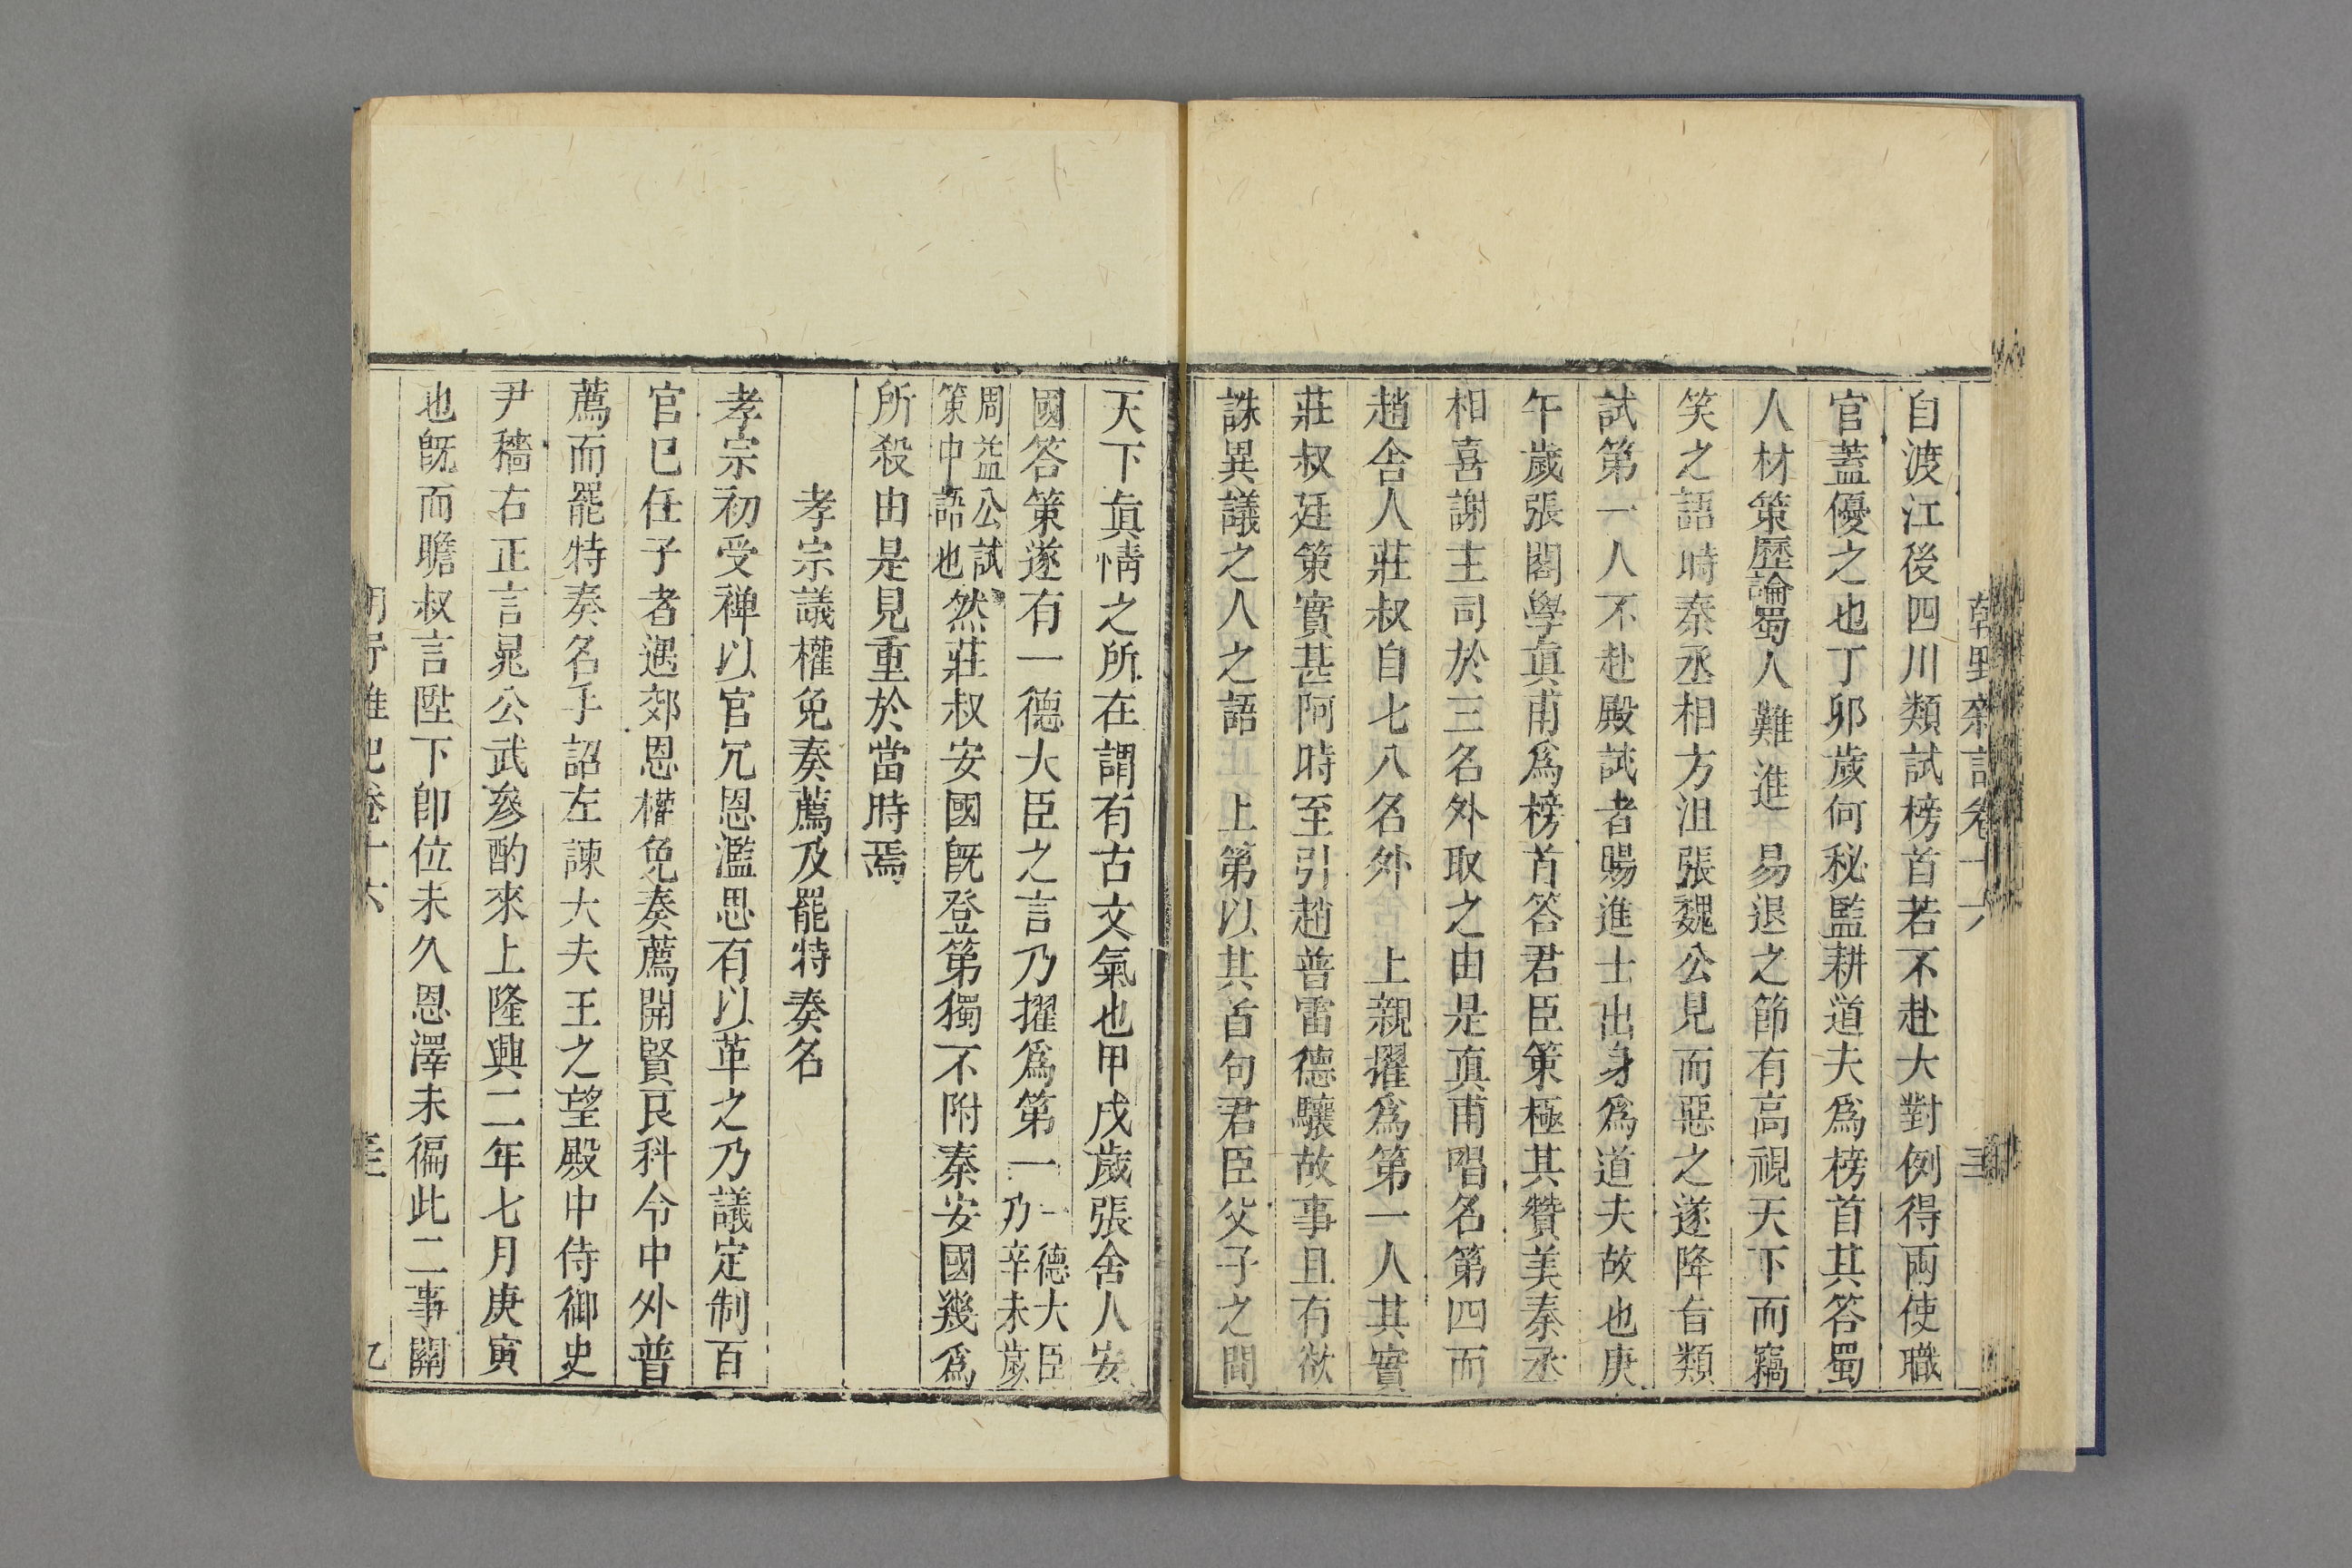 自渡江後四川類試榜首若不赴大對例得兩使職
官蓋優之也丁卯歲何秘監耕道夫爲榜首其答蜀
人材策歷論蜀人難進易退之節有高視天下而竊
笑之語時秦丞相方沮張魏公見而惡之遂降旨類
試第一人不赴殿試者賜進士出身爲道夫故也庚
午歲張閣學眞甫爲榜首答君臣策極其贊美秦丞
相喜謝主司於三名外取之由是眞甫唱名第四而
趙舍人莊叔自七八名外　上親擢爲第一人其實
莊叔廷策實甚阿時至引趙普雷德驤故事且有欲
誅異議之人之語　上第以其首句君臣父子之間
天下眞情之所在謂有古文氣也甲戌歲張舍人安
國答策遂有一德大臣之言乃擢爲第一一德大臣乃辛未歲
周益公試策中語也然莊叔安國旣登第獨不附秦安國幾爲
所殺由是見重於當時焉
孝宗議權免奏薦及罷特奏名
孝宗初受禅以官冗恩濫思有以革之乃議定制百
官已任子者遇郊恩權免奏薦開賢良科令中外普
薦而罷特奏名手詔左諫大夫王之望殿中侍御史
尹穡右正言晁公武參酌來上隆興二年七月庚寅
也旣而瞻叔言陛下卽位未久恩澤未徧此二事關